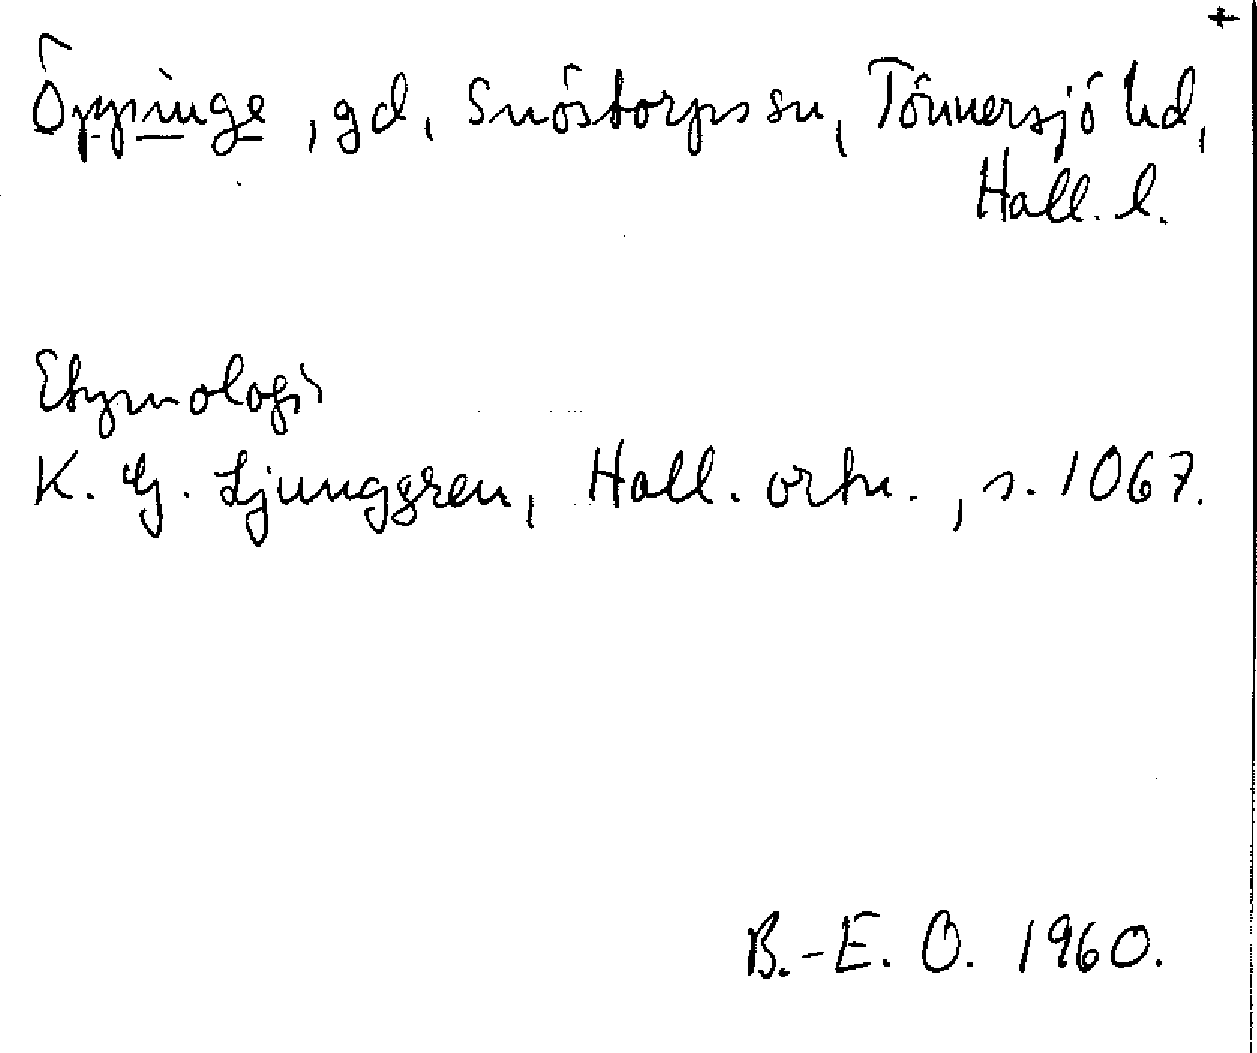 +
Öppinge, gd, Snöstorps sn, Tönnersjö hd,
Hall. l.
Etymologi
K. G. Ljunggren, Hall. ortn., s. 1067.
B.-E. O. 1960.